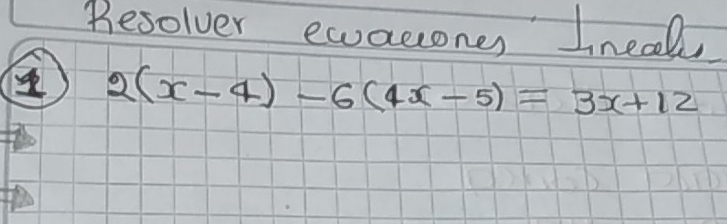 Resolver ecuaciones lineales
1 2(x-4) -6(4x-5) = 3x+12